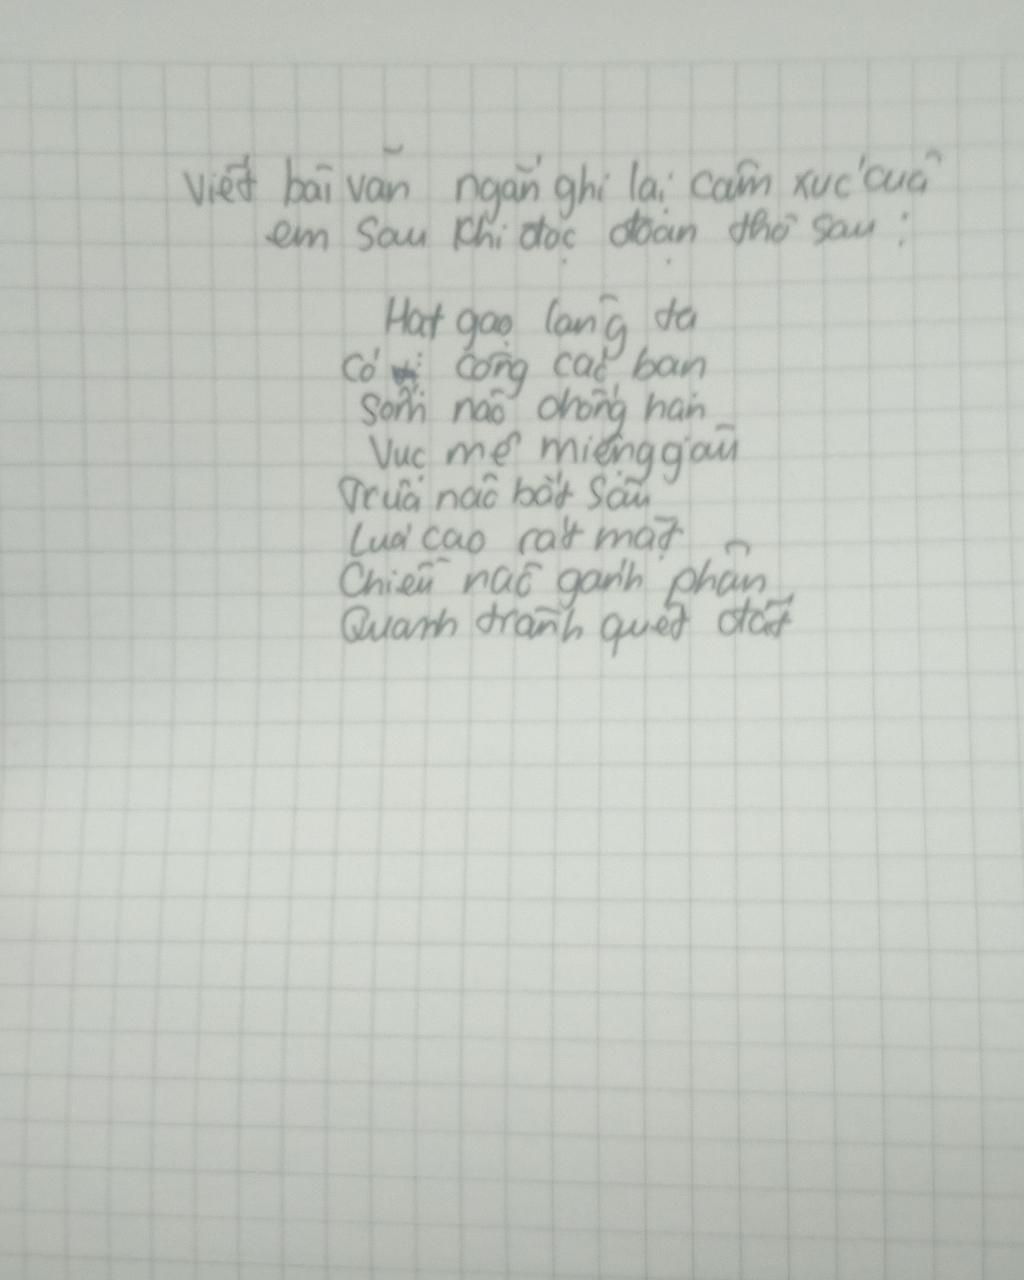 Viết bài văn ngắn ghi lại cảm xúc của
em sau khi đọc đoạn thơ sau :
Hạt gạo làng ta
Có công các bạn
Sớm nào chống hạn
Vục mẻ miệng gàu
Trưa nào bắt sâu
Lúa cao rát mặt
Chiều nào gánh phân
Quang trành quết đất